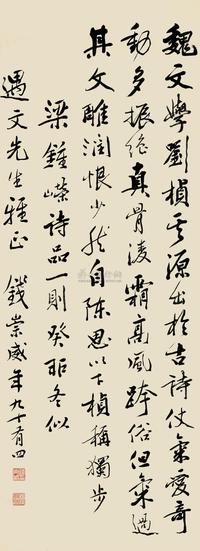 魏文學劉楨其源出於古詩仗氣愛奇
動多振絕真骨凌霜高風跨俗但氣過
其文雕潤恨少然自陳思以下楨稱獨步
梁鍾嶸詩品一則癸卯冬似
遇文先生雅正 錢崇威年九十有四